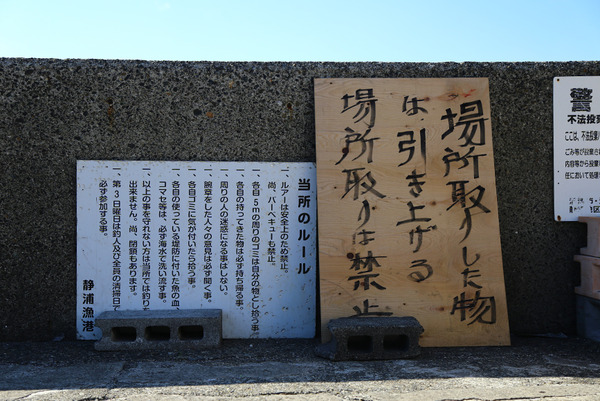 警
不法投
ここは、不法投
ごみ等が投棄され
内容等から投棄
任において処理
場所取りした物
は、引き上げる
場所取りは禁止
当所のルール
一、ルアーは安全上のため禁止。
尚、バーベキューも禁止。
一、各自5mの周りのゴミは自分の物とし拾う事。
一、各自の持ってきた物は必ず持ち帰る事。
一、周りの人の迷惑になる事はしない。
一、腕章をした人々の意見は必ず聞く事。
一、各自ゴミに気が付いたら拾う事。
一、各自の使っている堤防に付いた魚の血、
コマセ等は、必ず海水で洗い流す事。
一、以上の事を守れない方は当所では釣りを
出来ません。尚、閉鎖もあります。
一、第3日曜日は釣人及び全員の清掃日で
必ず参加する事。
静浦漁港